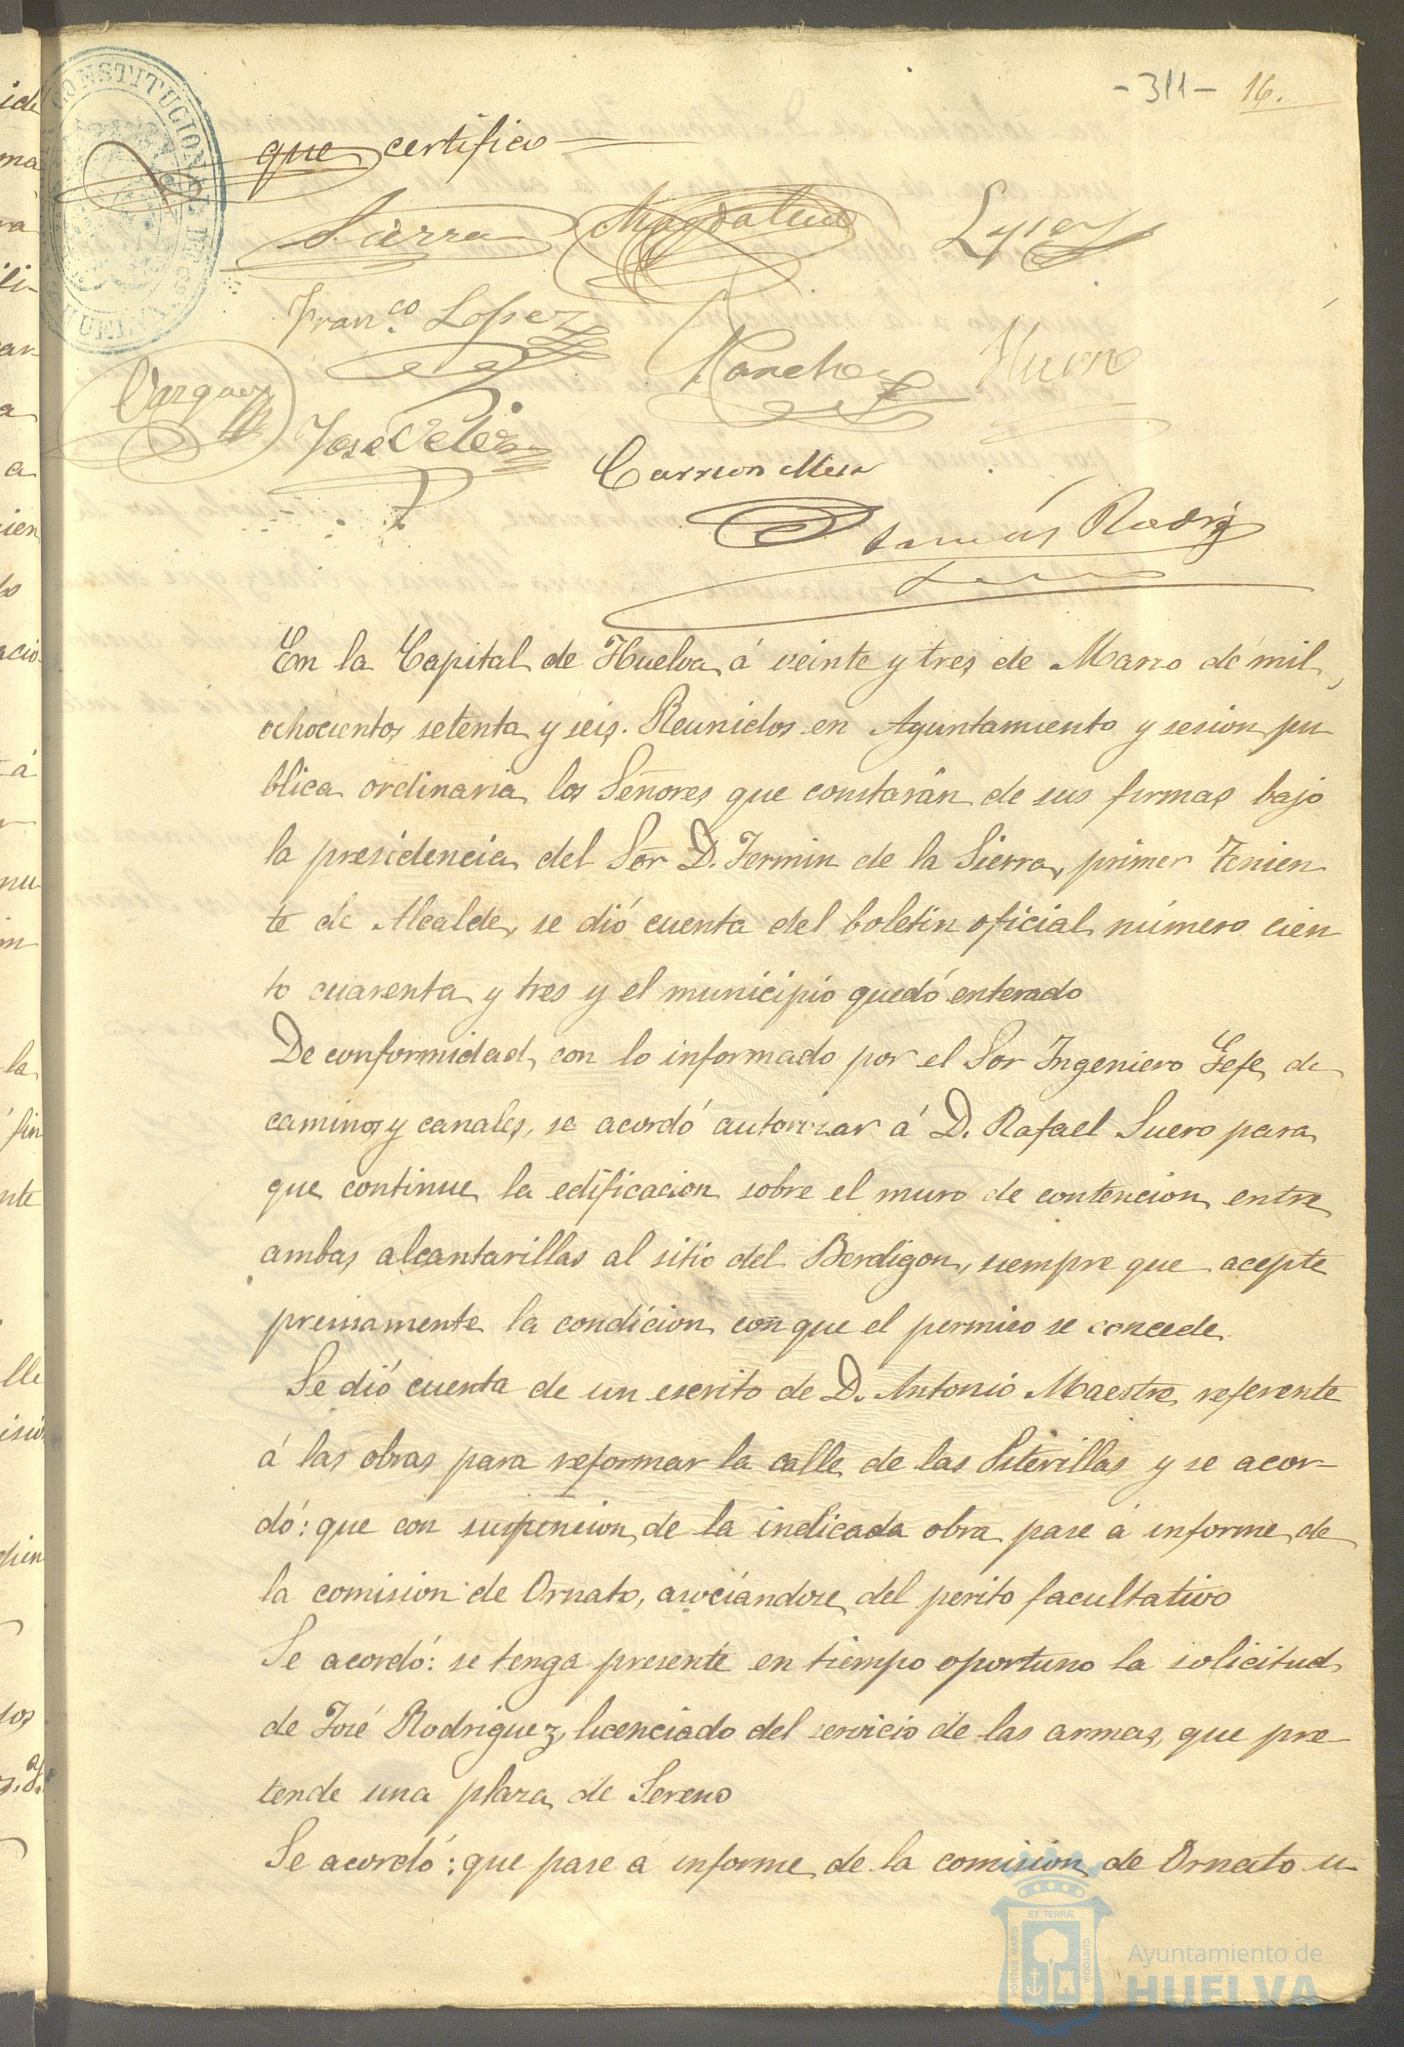 -311- 16.
que certifico
Sierra Magdalena Lopez
Fran.co Lopez Sanchez
Vazquez José Velez
Carrion Mesa
Tomás Rodrig
En la Capital de Huelva á veinte y tres de Marzo de mil
ochocientos setenta y seis. Reunidos en Ayuntamiento y sesion pu
blica ordinaria los Señores que constarán de sus firmas bajo
la presidencia del Sor D. Fermin de la Sierra, primer Tenien
te de Alcalde, se dió cuenta del boletin oficial número cien
to cuarenta y tres y el municipio quedó enterado
De conformidad con lo informado por el Sor Ingeniero Gefe de
caminos y canales, se acordó autorizar á D. Rafael Suero para
que continue la edificacion sobre el muro de contencion entre
ambas alcantarillas al sitio del Berdigon, siempre que acepte
previamente la condicion con que el permiso se concede
Se dió cuenta de un escrito de D. Antonio Maestre referente
á las obras para reformar la calle de las Siterillas y se acor-
dó: que con suspencion de la indicada obra pase á informe de
la comision de Ornato, asociándose del perito facultativo
Se acordó: se tenga presente en tiempo oportuno la solicitud
de José Rodriguez, licenciado del servicio de las armas, que pre-
tende una plaza de Sereno
Se acordó: que pase á informe de la comision de Ornato u
CONSTITUCIONAL DE
HUELVA
ET TERRÆ
PORTUS MARIS
CUSTODIA
Ayuntamiento de
HUELVA